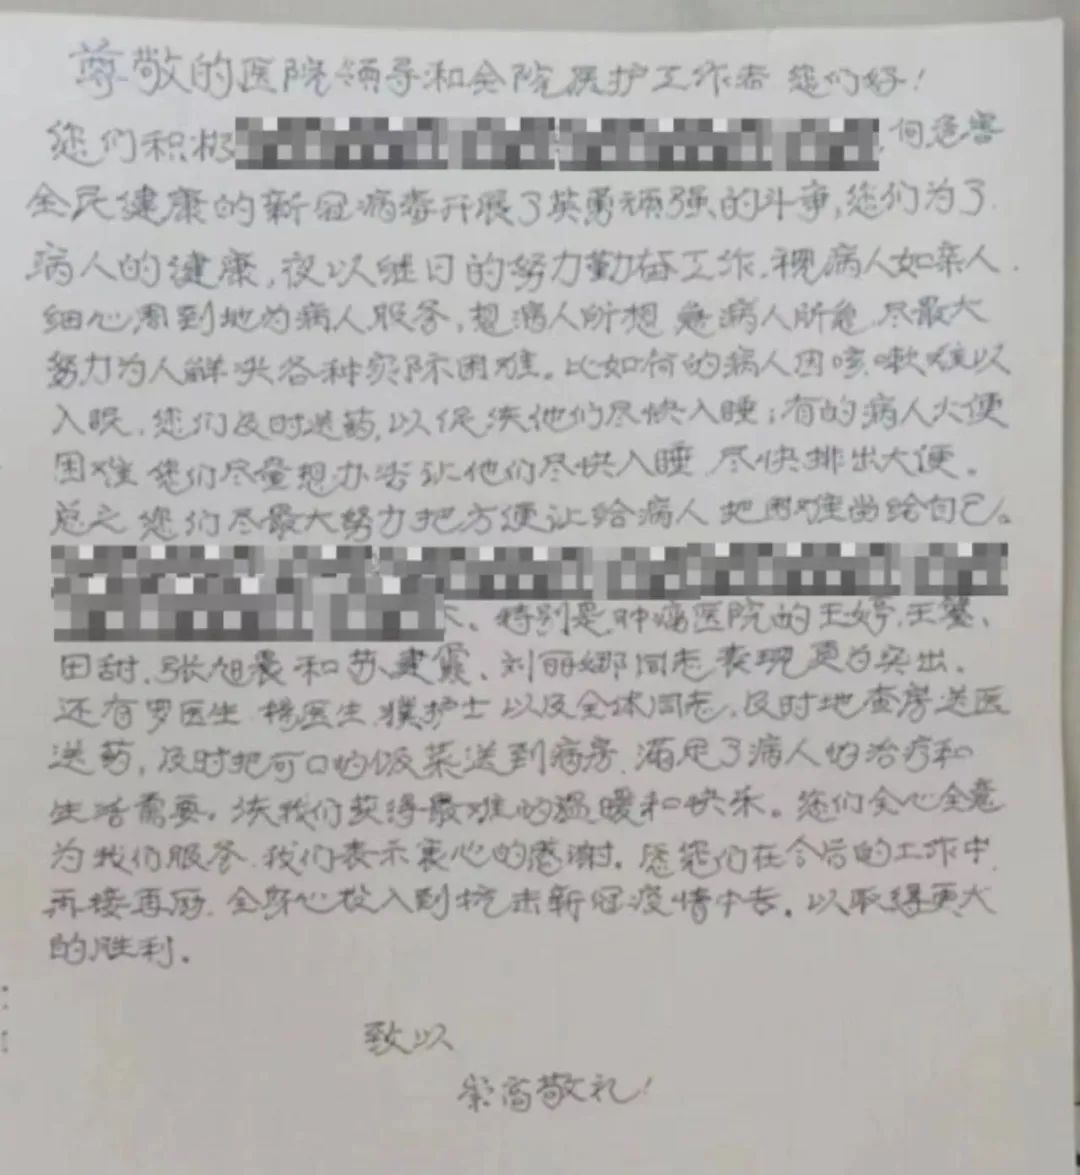 尊敬的医院领导和全院医护工作者 您们好!
您们积极 向危害
全民健康的新冠病毒开展了英勇顽强的斗争,您们为了
病人的健康,夜以继日的努力勤奋工作,视病人如亲人.
细心周到地为病人服务,想病人所想 急病人所急 尽最大
努力为人解决各种实际困难。比如有的病人因咳嗽难以
入眠,您们及时送药,以促使他们尽快入睡;有的病人大便
困难 您们尽量想办法让他们尽快入睡 尽快排出大便。
总之 您们尽最大努力把方便让给病人 把困难留给自己。
特别是肿瘤医院的王婷,王
田甜,张旭晨和苏建霞、刘丽娜同志表现更为突出.
还有罗医生 杨医生 护士以及全体同志,及时地查房送医
送药,及时把可口的饭菜送到病房 满足了病人的治疗和
生活需要,使我们获得最难的温暖和快乐。您们全心全意
为我们服务 我们表示衷心的感谢.愿您们在今后的工作中
再接再厉 全身心投入到抗击新冠疫情中去,以取得更大
的胜利.
致以
崇高敬礼!